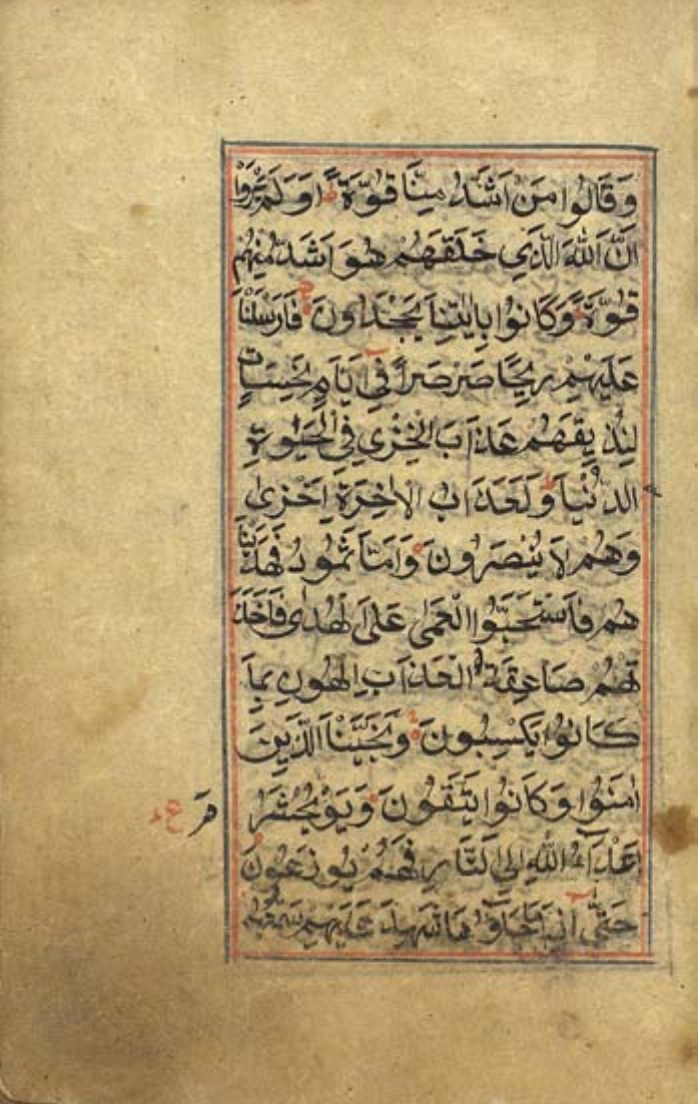 وَقَالُوا مَنْ اَشَدُّ مِنَّا قُوَّةً ط اَوَلَمْ يَرَوْا
اَنَّ اللهَ الَّذِي خَلَقَهُمْ هُوَ اَشَدُّ مِنْهُمْ
قُوَّةً وَكَانُوا بِاٰيٰتِنَا يَجْحَدُونَ فَاَرْسَلْنَا
عَلَيْهِمْ رِيْحًا صَرْصَرًا فِي اَيَّامٍ نَحِسَاتٍ
لِنُذِيقَهُمْ عَذَابَ الْخِزْيِ فِي الْحَيٰوةِ
الدُّنْيَا وَلَعَذَابُ الْاٰخِرَةِ اَخْزٰى
وَهُمْ لَا يُنْصَرُونَ وَاَمَّا ثَمُودُ فَهَدَيْنَا
هُمْ فَاسْتَحَبُّوا الْعَمٰى عَلَى الْهُدٰى فَاَخَذَ
تْهُمْ صَاعِقَةُ الْعَذَابِ الْهُونِ بِمَا
كَانُوا يَكْسِبُونَ وَنَجَّيْنَا الَّذِينَ
اٰمَنُوا وَكَانُوا يَتَّقُونَ وَيَوْمَ يُحْشَرُ
اَعْدَآءُ اللهِ اِلَى النَّارِ فَهُمْ يُوزَعُونَ
حَتّٰى اِذَا مَا جَآؤُهَا شَهِدَ عَلَيْهِمْ سَمْعُهُمْ
ع